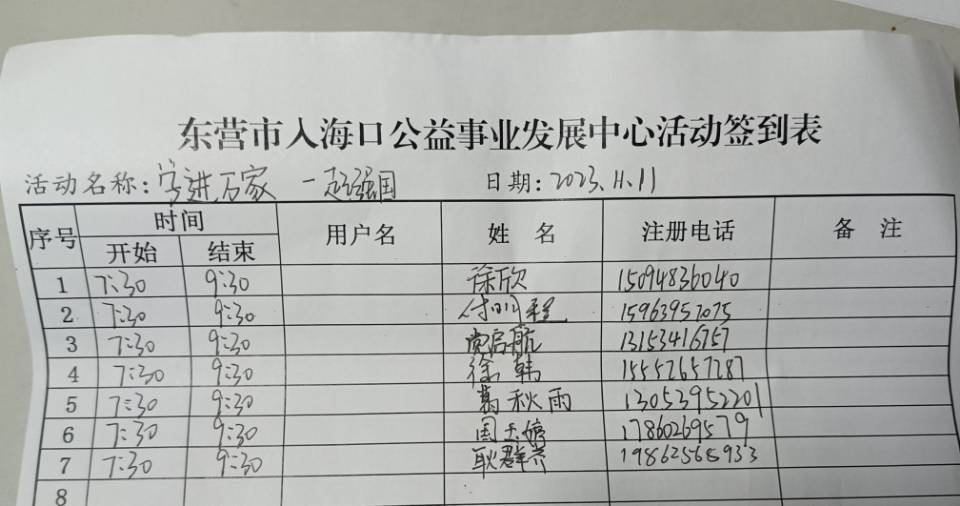 东营市入海口公益事业发展中心活动签到表
活动名称：学进万家 一起强国 日期：2023.11.11
序号 时间 用户名 姓名 注册电话 备注
开始 结束
1 7:30 9:30 徐欣 15094836040
2 7:30 9:30 15963957075
3 7:30 9:30 启航 13153416757
4 7:30 9:30 徐韩 15552657287
5 7:30 9:30 葛秋雨 13053952201
6 7:30 9:30 周玉婷 17860269579
7 7:30 9:30 耿群 19862565933
8